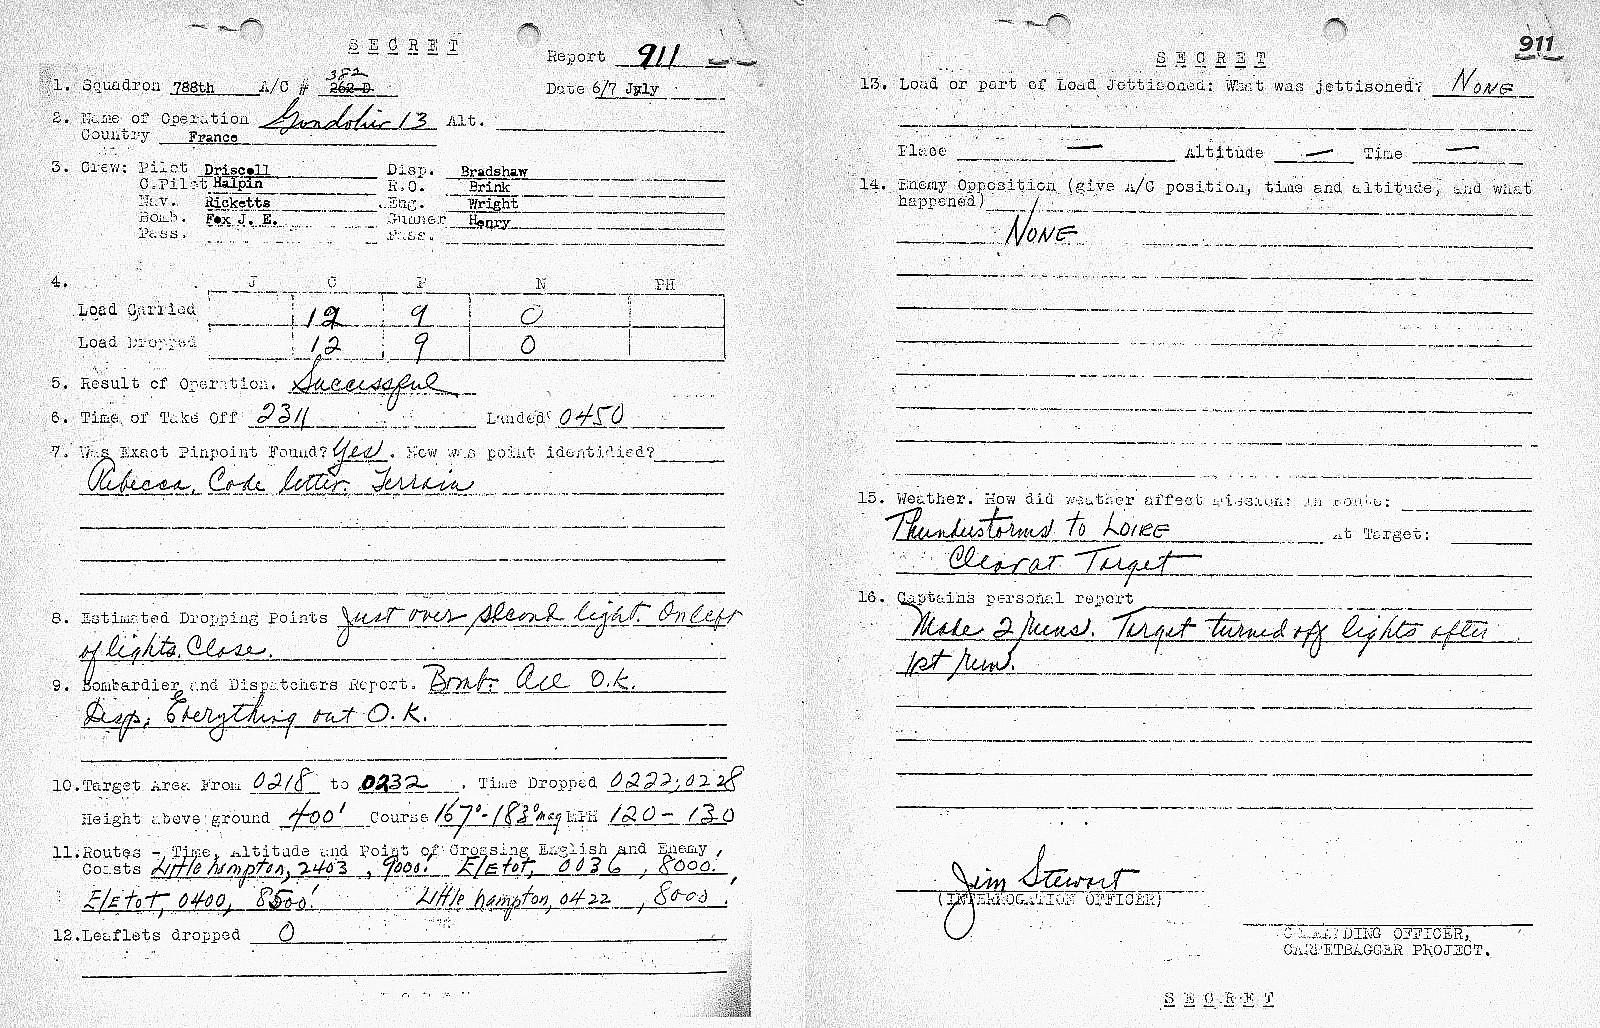 SECRET
Report 911
1. Squadron 788th A/C # 382 262-D
Date 6/7 July
2. Name of Operation Gondolier 13 Alt.
Country France
3. Crew: Pilot Driscoll Disp. Bradshaw
C.Pilot Halpin R.O. Brink
Nav. Ricketts Eng. Wright
Bomb. Fox J. E. Gunner Henry
Pass. Pass.
4. J C P N PH
Load Carried 12 9 0
Load Dropped 12 9 0
5. Result of Operation. Successful
6. Time of Take Off 2311 Landed 0450
7. Was Exact Pinpoint Found? Yes. How was point identidied?
Rebecca, Code letter. Terrain
8. Estimated Dropping Points Just over second light. On left
of lights. Close.
9. Bombardier and Dispatchers Report. Bomb: All O.K.
Disp; Everything out O.K.
10. Target Area From 0218 to 0232. Time Dropped 0222; 0228
Height above ground 400' Course 167° - 183° mag MPH 120 - 130
11. Routes - Time, Altitude and Point of Crossing English and Enemy
Coasts Little hampton, 2403, 9000'. Eletot, 0036, 8000'.
Eletot, 0400, 8500'. Little hampton, 0422, 8000'.
12. Leaflets dropped 0
911
SECRET
13. Load or part of Load Jettisoned: What was jettisoned? NONE
Place — Altitude — Time —
14. Enemy Opposition (give A/C position, time and altitude, and what
happened)
NONE
15. Weather. How did weather affect mission: In route:
Thunderstorms to LOIRE At Target:
Clear at Target
16. Captains personal report
Made 2 runs. Target turned off lights after
1st run.
Jim Stewart
(INTERROGATION OFFICER)
COMMANDING OFFICER,
CARPETBAGGER PROJECT.
SECRET